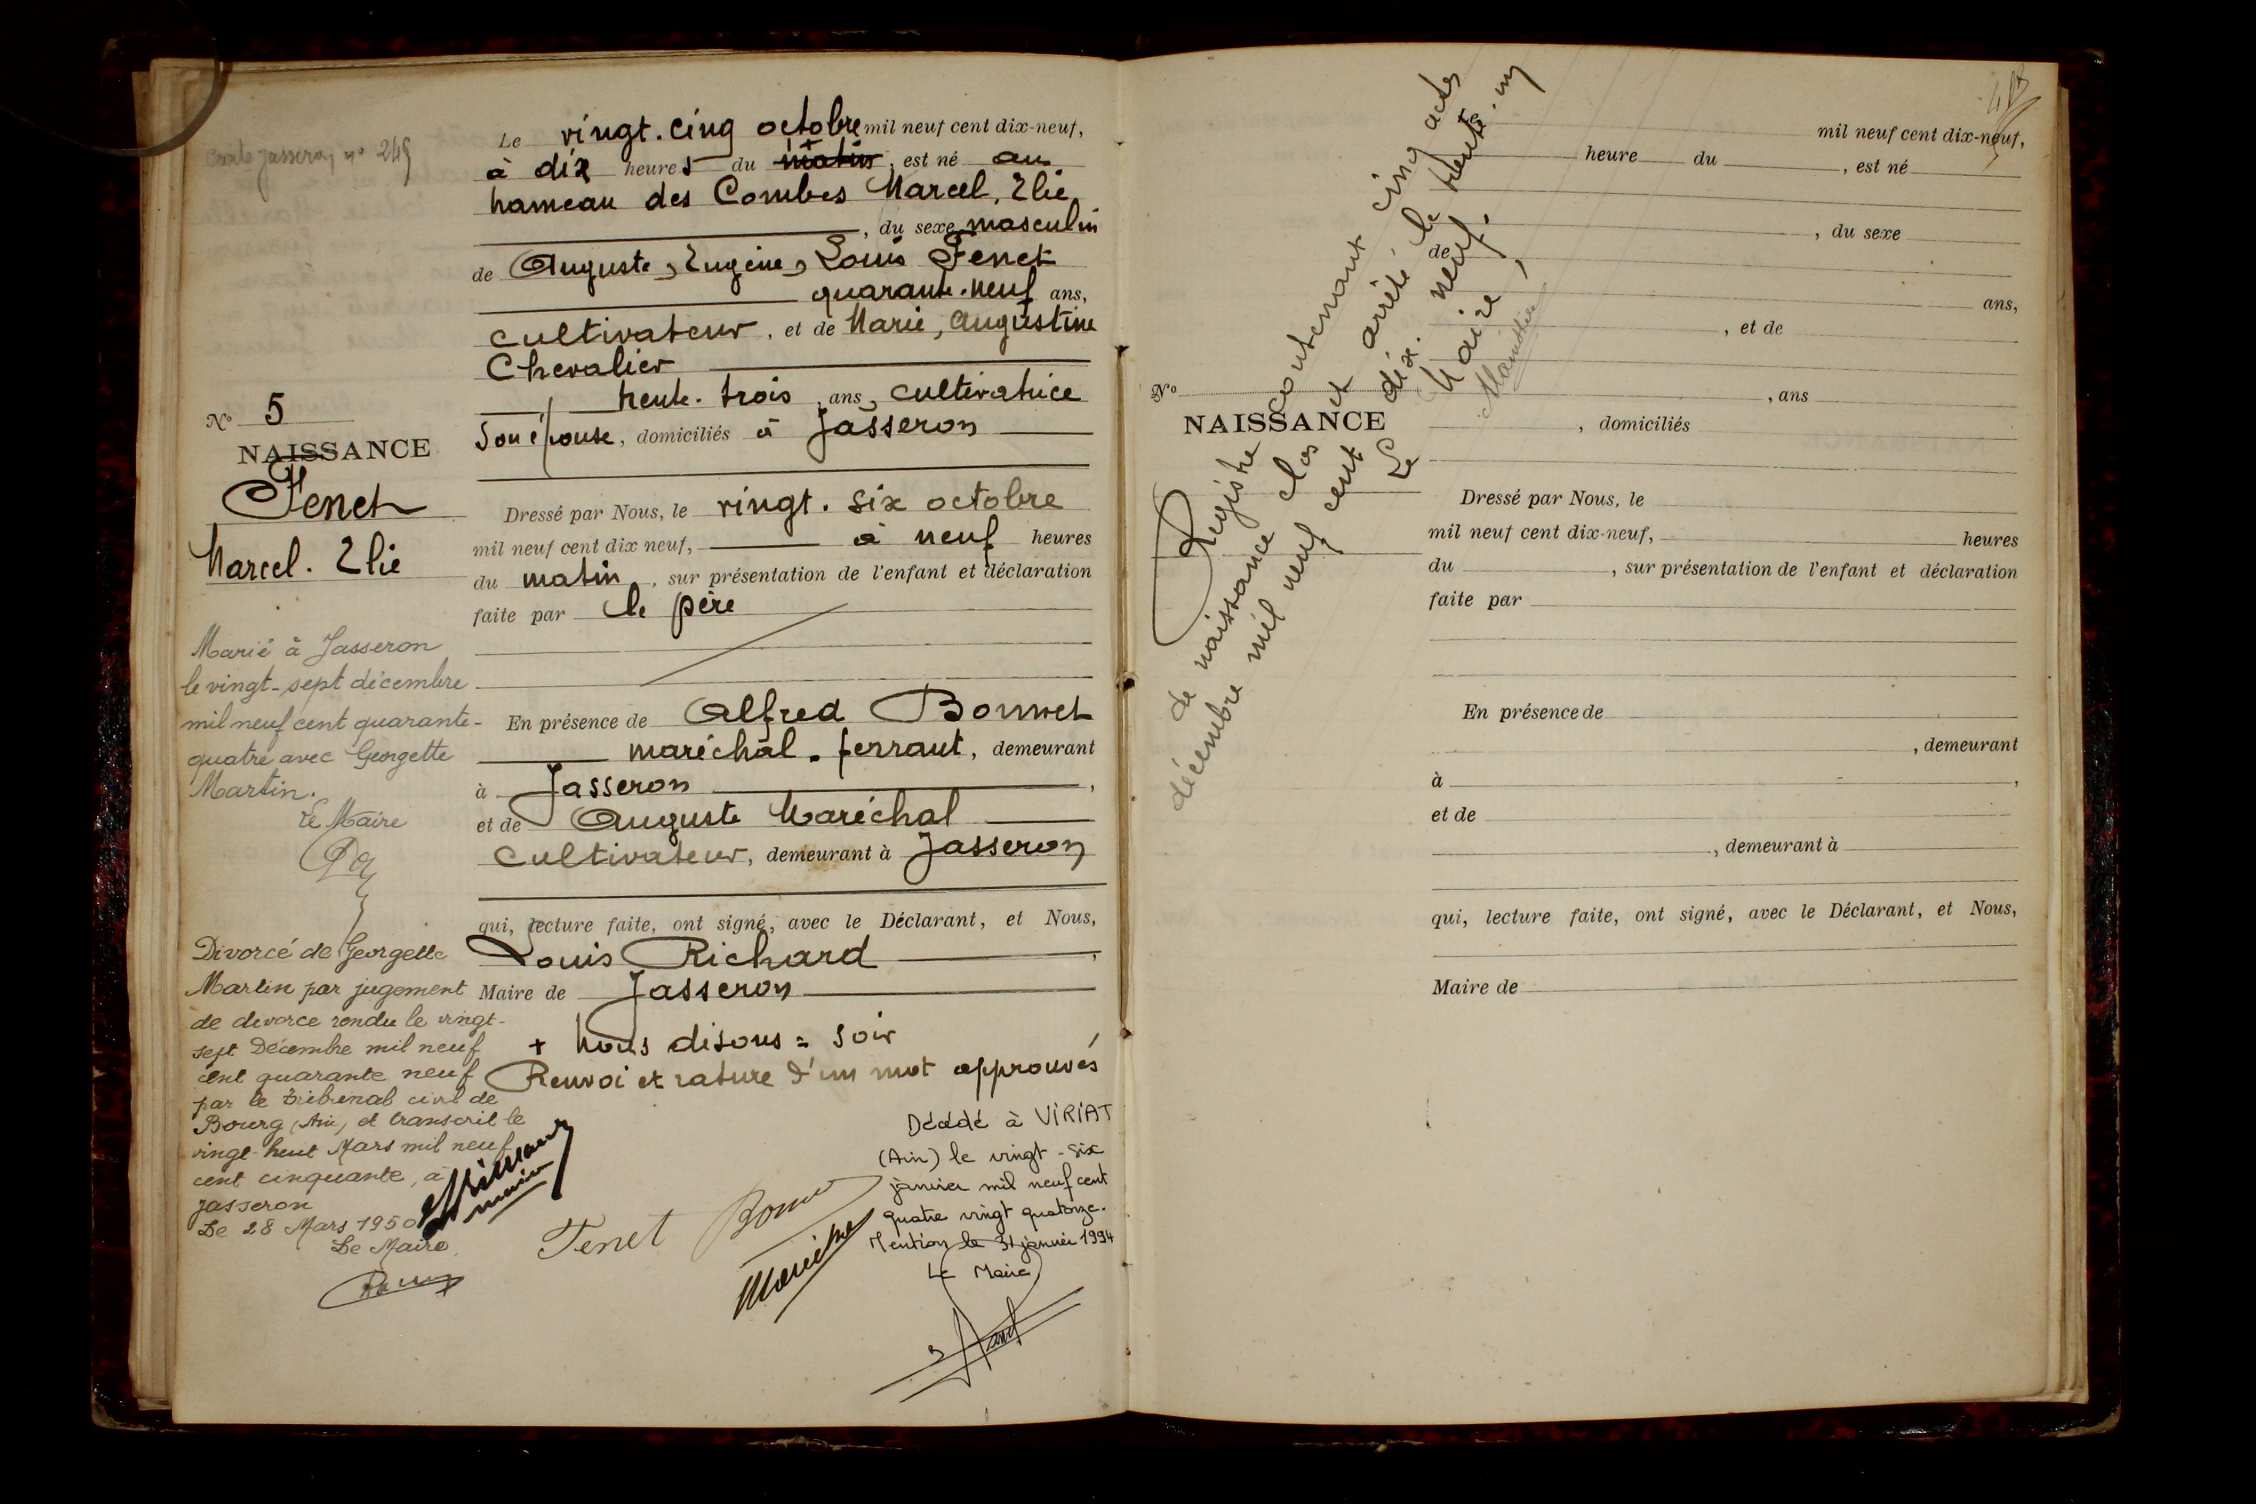 Carte Jasseron nº 249
Le vingt.cinq octobre mil neuf cent dix-neuf,
à dix heures du matin +, est né au
hameau des Combes Marcel, Elie
, du sexe masculin
de Auguste, Eugène, Louis Fenet
quarante.neuf ans,
cultivateur, et de Marie, Augustine
Chevalier
trente.trois ans, cultivatrice
son épouse, domiciliés à Jasseron
Nº 5
NAISSANCE
Fenet
Marcel. Elie
Dressé par Nous, le vingt.six octobre
mil neuf cent dix neuf, à neuf heures
du matin, sur présentation de l'enfant et déclaration
faite par le père
En présence de Alfred Bonnet
maréchal-ferrant, demeurant
à Jasseron,
et de Auguste Maréchal
cultivateur, demeurant à Jasseron
qui, lecture faite, ont signé, avec le Déclarant, et Nous,
Louis Richard,
Maire de Jasseron
+ nous disons = soir
Renvoi et rature d'un mot approuvés
Marié à Jasseron
le vingt-sept décembre
mil neuf cent quarante-
quatre avec Georgette
Martin.
Le Maire
Divorcé de Georgette
Martin par jugement
de divorce rendu le vingt-
sept Décembre mil neuf
cent quarante neuf
par le tribunal civil de
Bourg (Ain) et transcrit le
vingt-huit Mars mil neuf
cent cinquante, à
Jasseron
Le 28 Mars 1950
Le Maire,
Fenet
Bonnet
Maréchal
maire
Décédé à VIRIAT
(Ain) le vingt-six
janvier mil neuf cent
quatre vingt quatorze.
Mention le 31 janvier 1994
Le Maire
Registre contenant cinq actes
de naissance clos et arrêté le trente.un
décembre mil neuf cent dix.neuf.
Le Maire,
mil neuf cent dix-neuf,
heure du , est né
, du sexe
de
ans,
, et de
Nº
NAISSANCE
, ans
, domiciliés
Dressé par Nous, le
mil neuf cent dix-neuf, heures
du , sur présentation de l'enfant et déclaration
faite par
En présence de
, demeurant
à ,
et de
, demeurant à
qui, lecture faite, ont signé, avec le Déclarant, et Nous,
Maire de